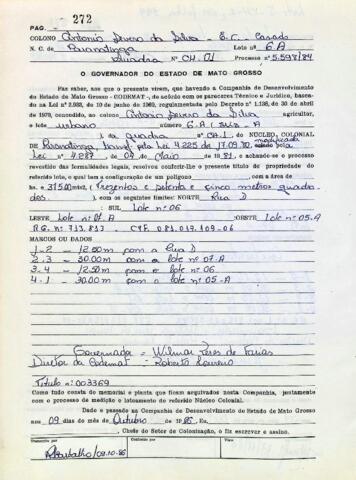 PAG. 272
COLONO Antonio Severo da Silva - E.C. Casado
N. C. de Paranatinga Lote nº 6 A
Quadra nº CH. 01 Processo nº 5.597/84
O GOVERNADOR DO ESTADO DE MATO GROSSO
Faz saber, aos que o presente virem, que havendo a Companhia de Desenvolvimento
do Estado de Mato Grosso - CODEMAT -, de acôrdo com os pareceres Técnico e Jurídico, basea-
do na Lei nº 2.933, de 10 de junho de 1969, regulamentada pelo Decreto nº 1.138, de 30 de abril
de 1970, concedido, ao colono Antonio Severo da Silva, agricultor,
o lote urbano nº 6 A (seis A
) da quadra nº CH.1 do NÚCLEO COLONIAL
Paranatinga, pela Lei 4.225 de 17.09.80, modificada pela
Lei nº 4.287 de 04 de Maio de 1981, e achando-se o processo
revestido das formalidades legais, resolveu conferir-lhe o presente título de propriedade do
referido lote, o qual tem a configuração de um polígono com a área de
hs. e 375,00 mts2 (Trezentos e setenta e cinco metros quadra
dos. ), com os seguintes limites: NORTE Rua D
SUL Lote nº 06
LESTE Lote nº 07.A OESTE Lote nº 05-A
R.G. nº 713.833 CPF. 081.019.109-06
MARCOS OU DADOS
1-2 - 12.50m com a Rua D
2.3 - 30.00m com o lote nº 07-A
3.4 - 12.50m com o lote nº 06
4.1 - 30.00m com o lote nº 05-A
Governador = Wilmar Peres de Farias
Diretor da Codemat - Roberto Loureiro
Titulo nº 003369
Como tudo consta do memorial e planta que ficam arquivados nesta Companhia, juntamente
com o processo de medição e loteamento do referido Núcleo Colonial.
Dado e passado na Companhia de Desenvolvimento do Estado de Mato Grosso
aos 09 dias do mês de Outubro de 1986. Eu,
, Chefe do Setor de Colonização, o fiz escrever e assino.
Transcrito por Conferido por Visto
/09.10.86